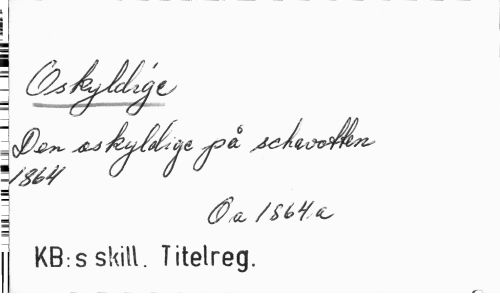 Oskyldige
Den oskyldige på schavotten
1864
Oa 1864 a
KB:s skill. Titelreg.